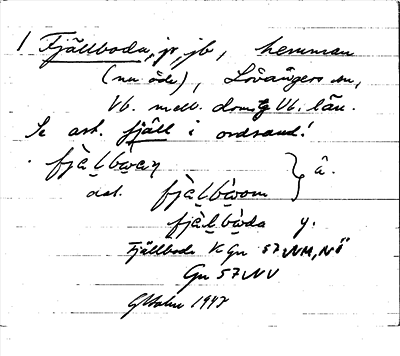 1 Fjällboda, jr, jb, hemman
(nu öde), Lövångers sn,
Vb. mell. doms. Vb. län.
Se art. fjäll i ordsaml.!
fjä̀l̬bẁan } ä.
dat. fjä̀l̬bẁom
fjä̀l̬bẁda y.
Fjällboda K Gn 57 NM, NÖ
Gn 57 NV
GHolm 1947